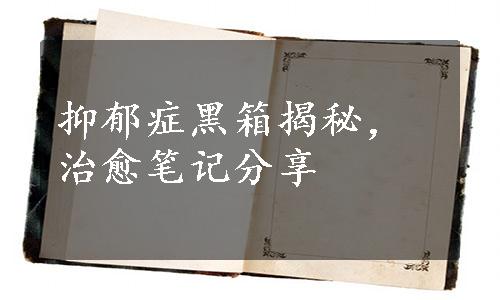 抑郁症黑箱揭秘，
治愈笔记分享